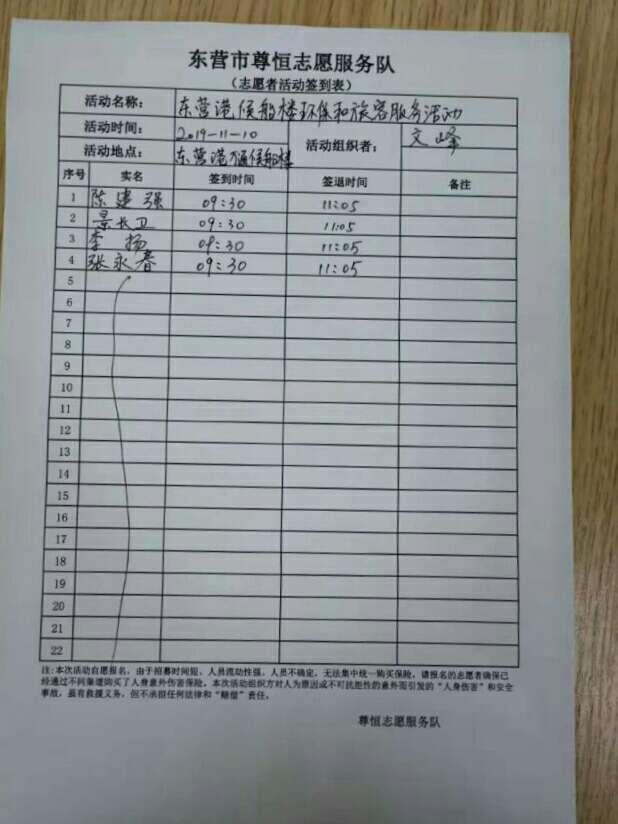 东营市尊恒志愿服务队
（志愿者活动签到表）
活动名称： 东营港候船楼环保和旅客服务活动
活动时间： 2019-11-10 活动组织者： 文峰
活动地点： 东营港 候船楼
序号 实名 签到时间 签退时间 备注
1 陈建强 09:30 11:05
2 景长卫 09:30 11:05
3 李扬 09:30 11:05
4 张永春 09:30 11:05
5
6
7
8
9
10
11
12
13
14
15
16
17
18
19
20
21
22
注:本次活动自愿报名，由于招募时间短、人员流动性强、人员不确定，无法集中统一购买保险，请报名的志愿者确保已
经通过不同渠道购买了人身意外伤害保险。本次活动组织方对人为原因或不可抗拒性的意外而引发的“人身伤害”和安全
事故，虽有救援义务，但不承担任何法律和“赔偿”责任。
尊恒志愿服务队